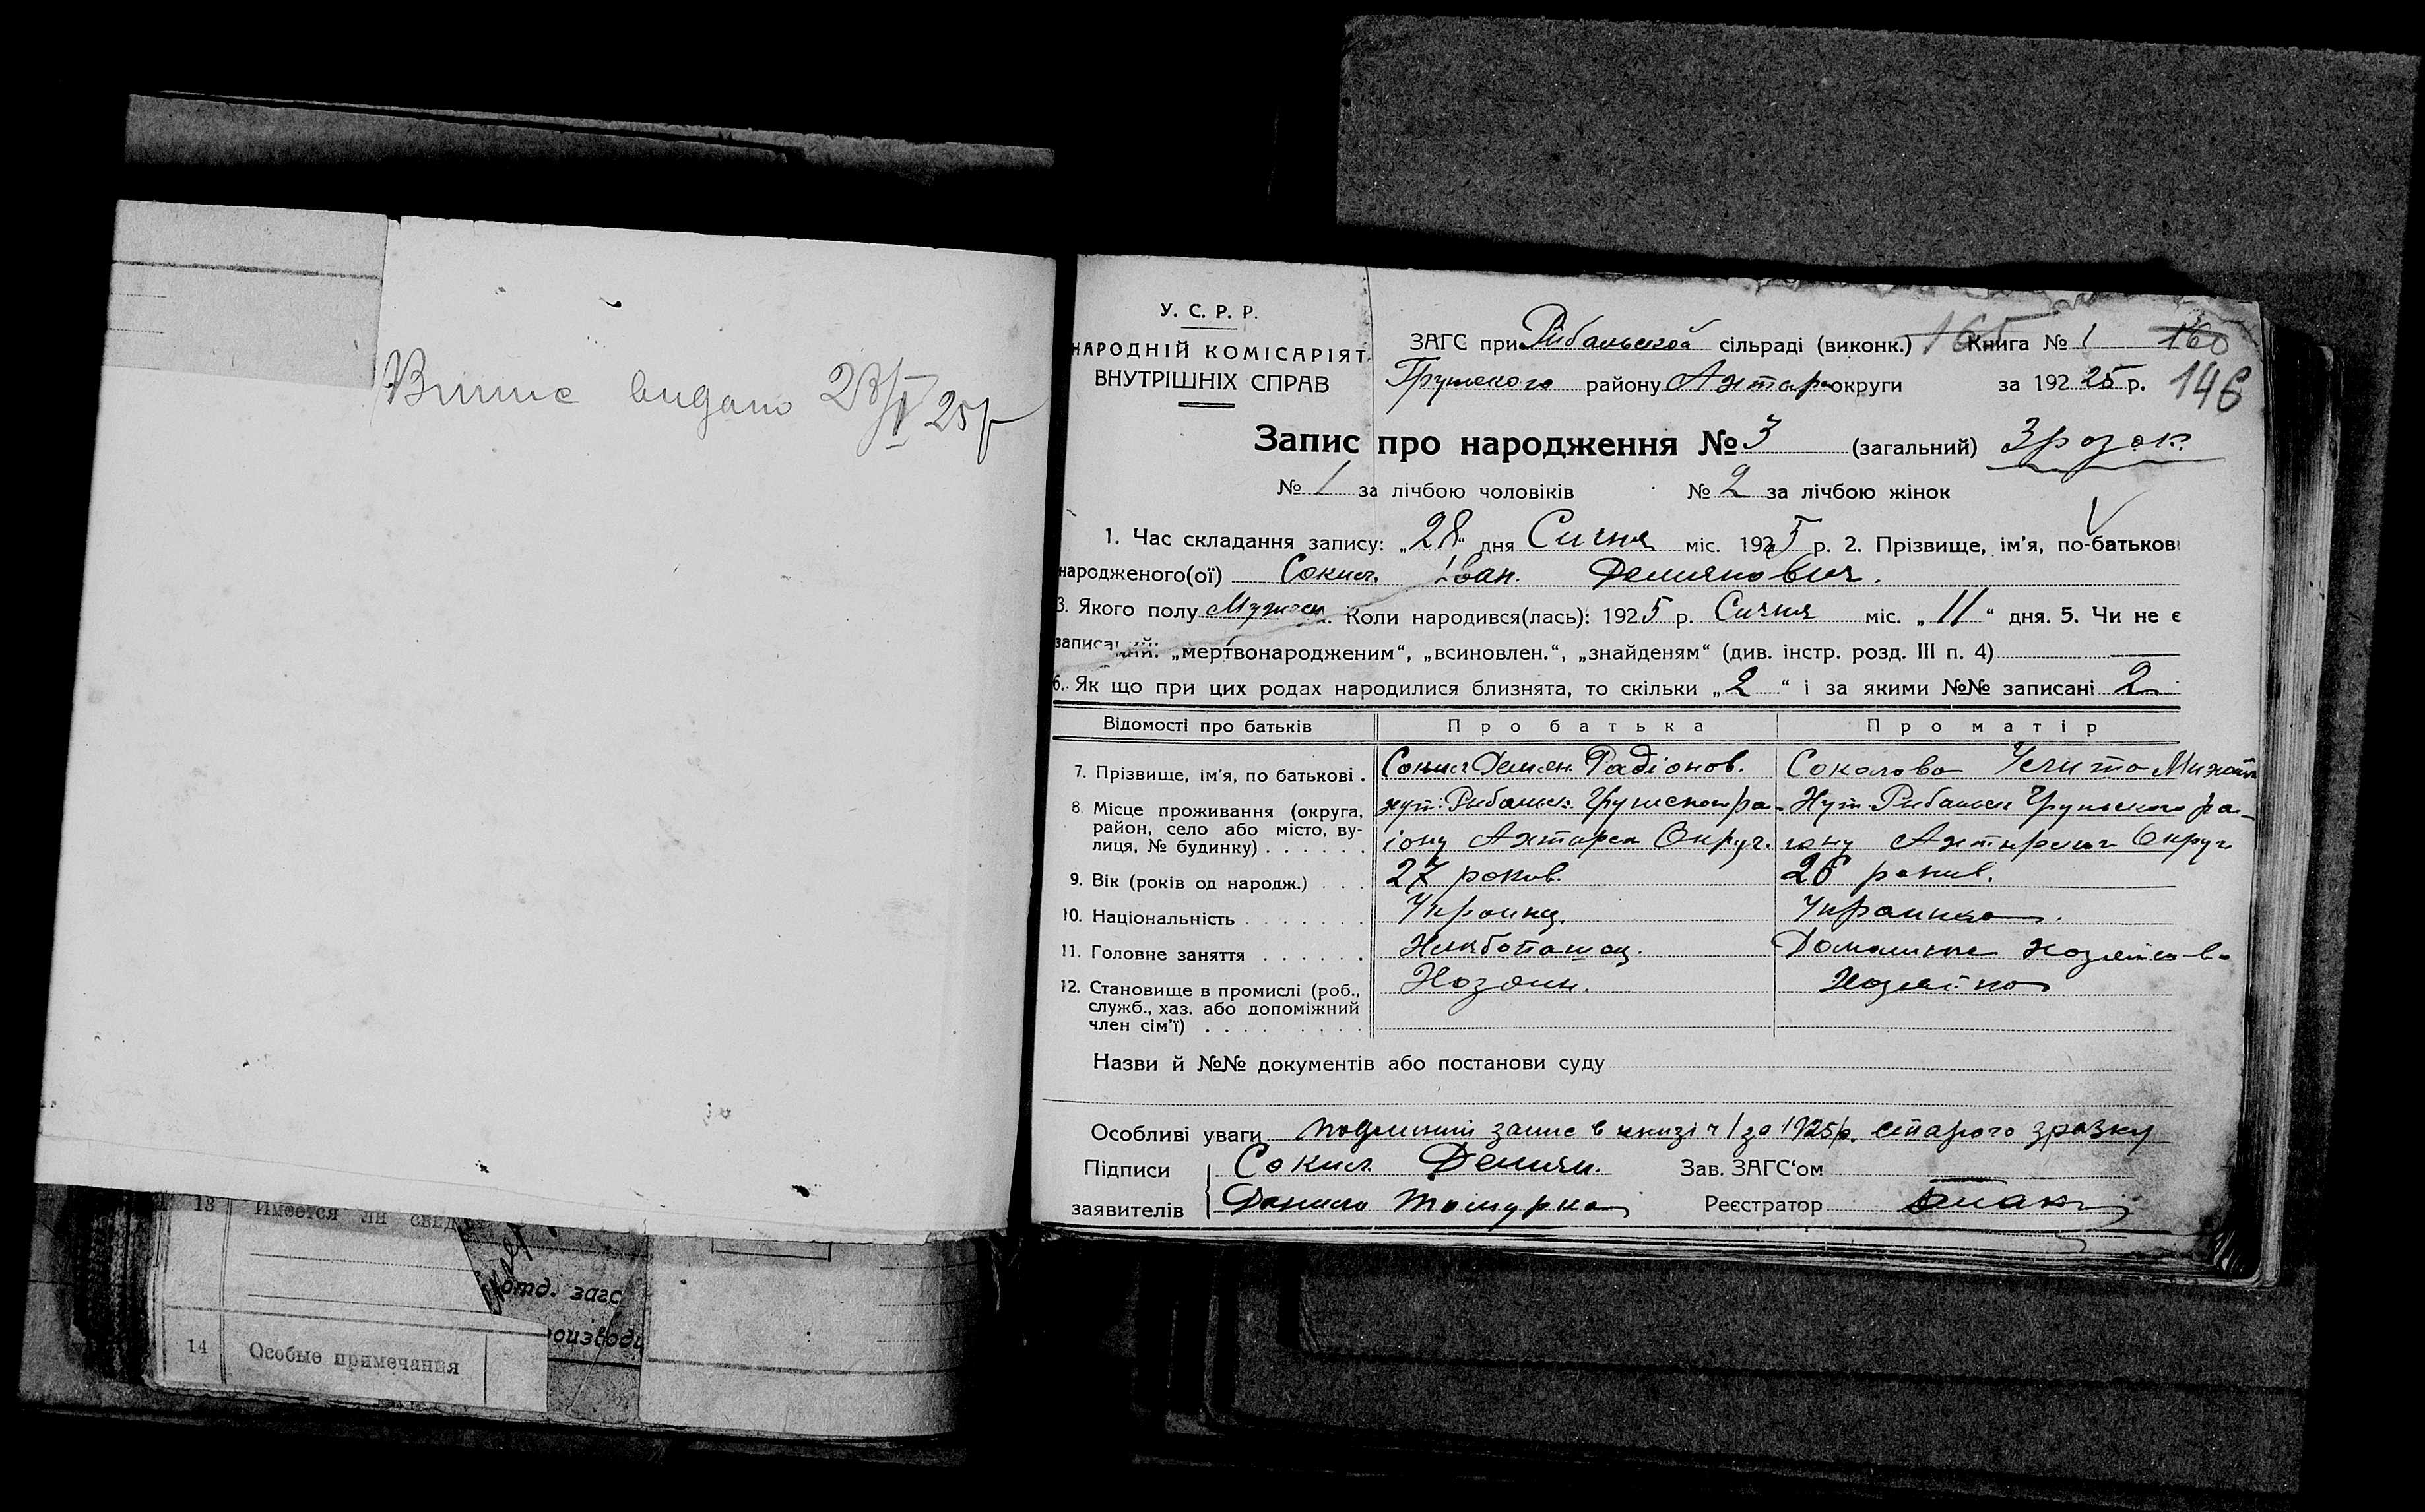 Випис видано 28/I 25р
13 Имеется ли свед
отд. загс
оизводи
14 Особые примечания
У. С. Р. Р.
НАРОДНІЙ КОМІСАРІЯТ
ВНУТРІШНІХ СПРАВ
ЗАГС при Рибальской сільраді (виконк.) 165 Книга № 1 160
Грунского району Ахтар округи за 1925 р. 146
Запис про народження № 3 (загальний) Зразок
№ 1 за лічбою чоловіків № 2 за лічбою жінок
1. Час складання запису: „28“ дня Сичня міс. 1925 р. 2. Прізвище, ім'я, по-батькові
народженого(ої) Сокил Іван Демянович.
3. Якого полу Мужеск. Коли народився(лась): 1925 р. Сичня міс. „11“ дня. 5. Чи не є
записаний: „мертвонародженим“, „всиновлен.“, „знайденям“ (див. інстр. розд. III п. 4)
6. Як що при цих родах народилися близнята, то скільки „2“ і за якими №№ записані 2
Відомості про батьків Про батька Про матір
7. Прізвище, ім'я, по батькові . Сокил Демян Радіонов. Соколова Улита Михайл
8. Місце проживання (округа, район, село або місто, вулиця, № будинку) . . . . . .
хут. Рибальск. Грунского ра- Хут. Рибальск Грунского ра-
іону Ахтарск Округ. іону Ахтирског Округ
9. Вік (років од народж.) . . . 27 рокив. 26 рокив.
10. Національність . . . . . . . Украинц. Украинка.
11. Головне заняття . . . . . . Хличботашец. Домашне хозяйсво
12. Становище в промислі (роб., служб., хаз. або допоміжний член сім'ї) . . . . . . . . Хозяин. Хозяйка
Назви й №№ документів або постанови суду
Особливі уваги подлиний запис в книзі ч 1 за 1925р. старого зразку
Підписи Сокил Демян. Зав. ЗАГС'ом
заявителів Данило Реєстратор